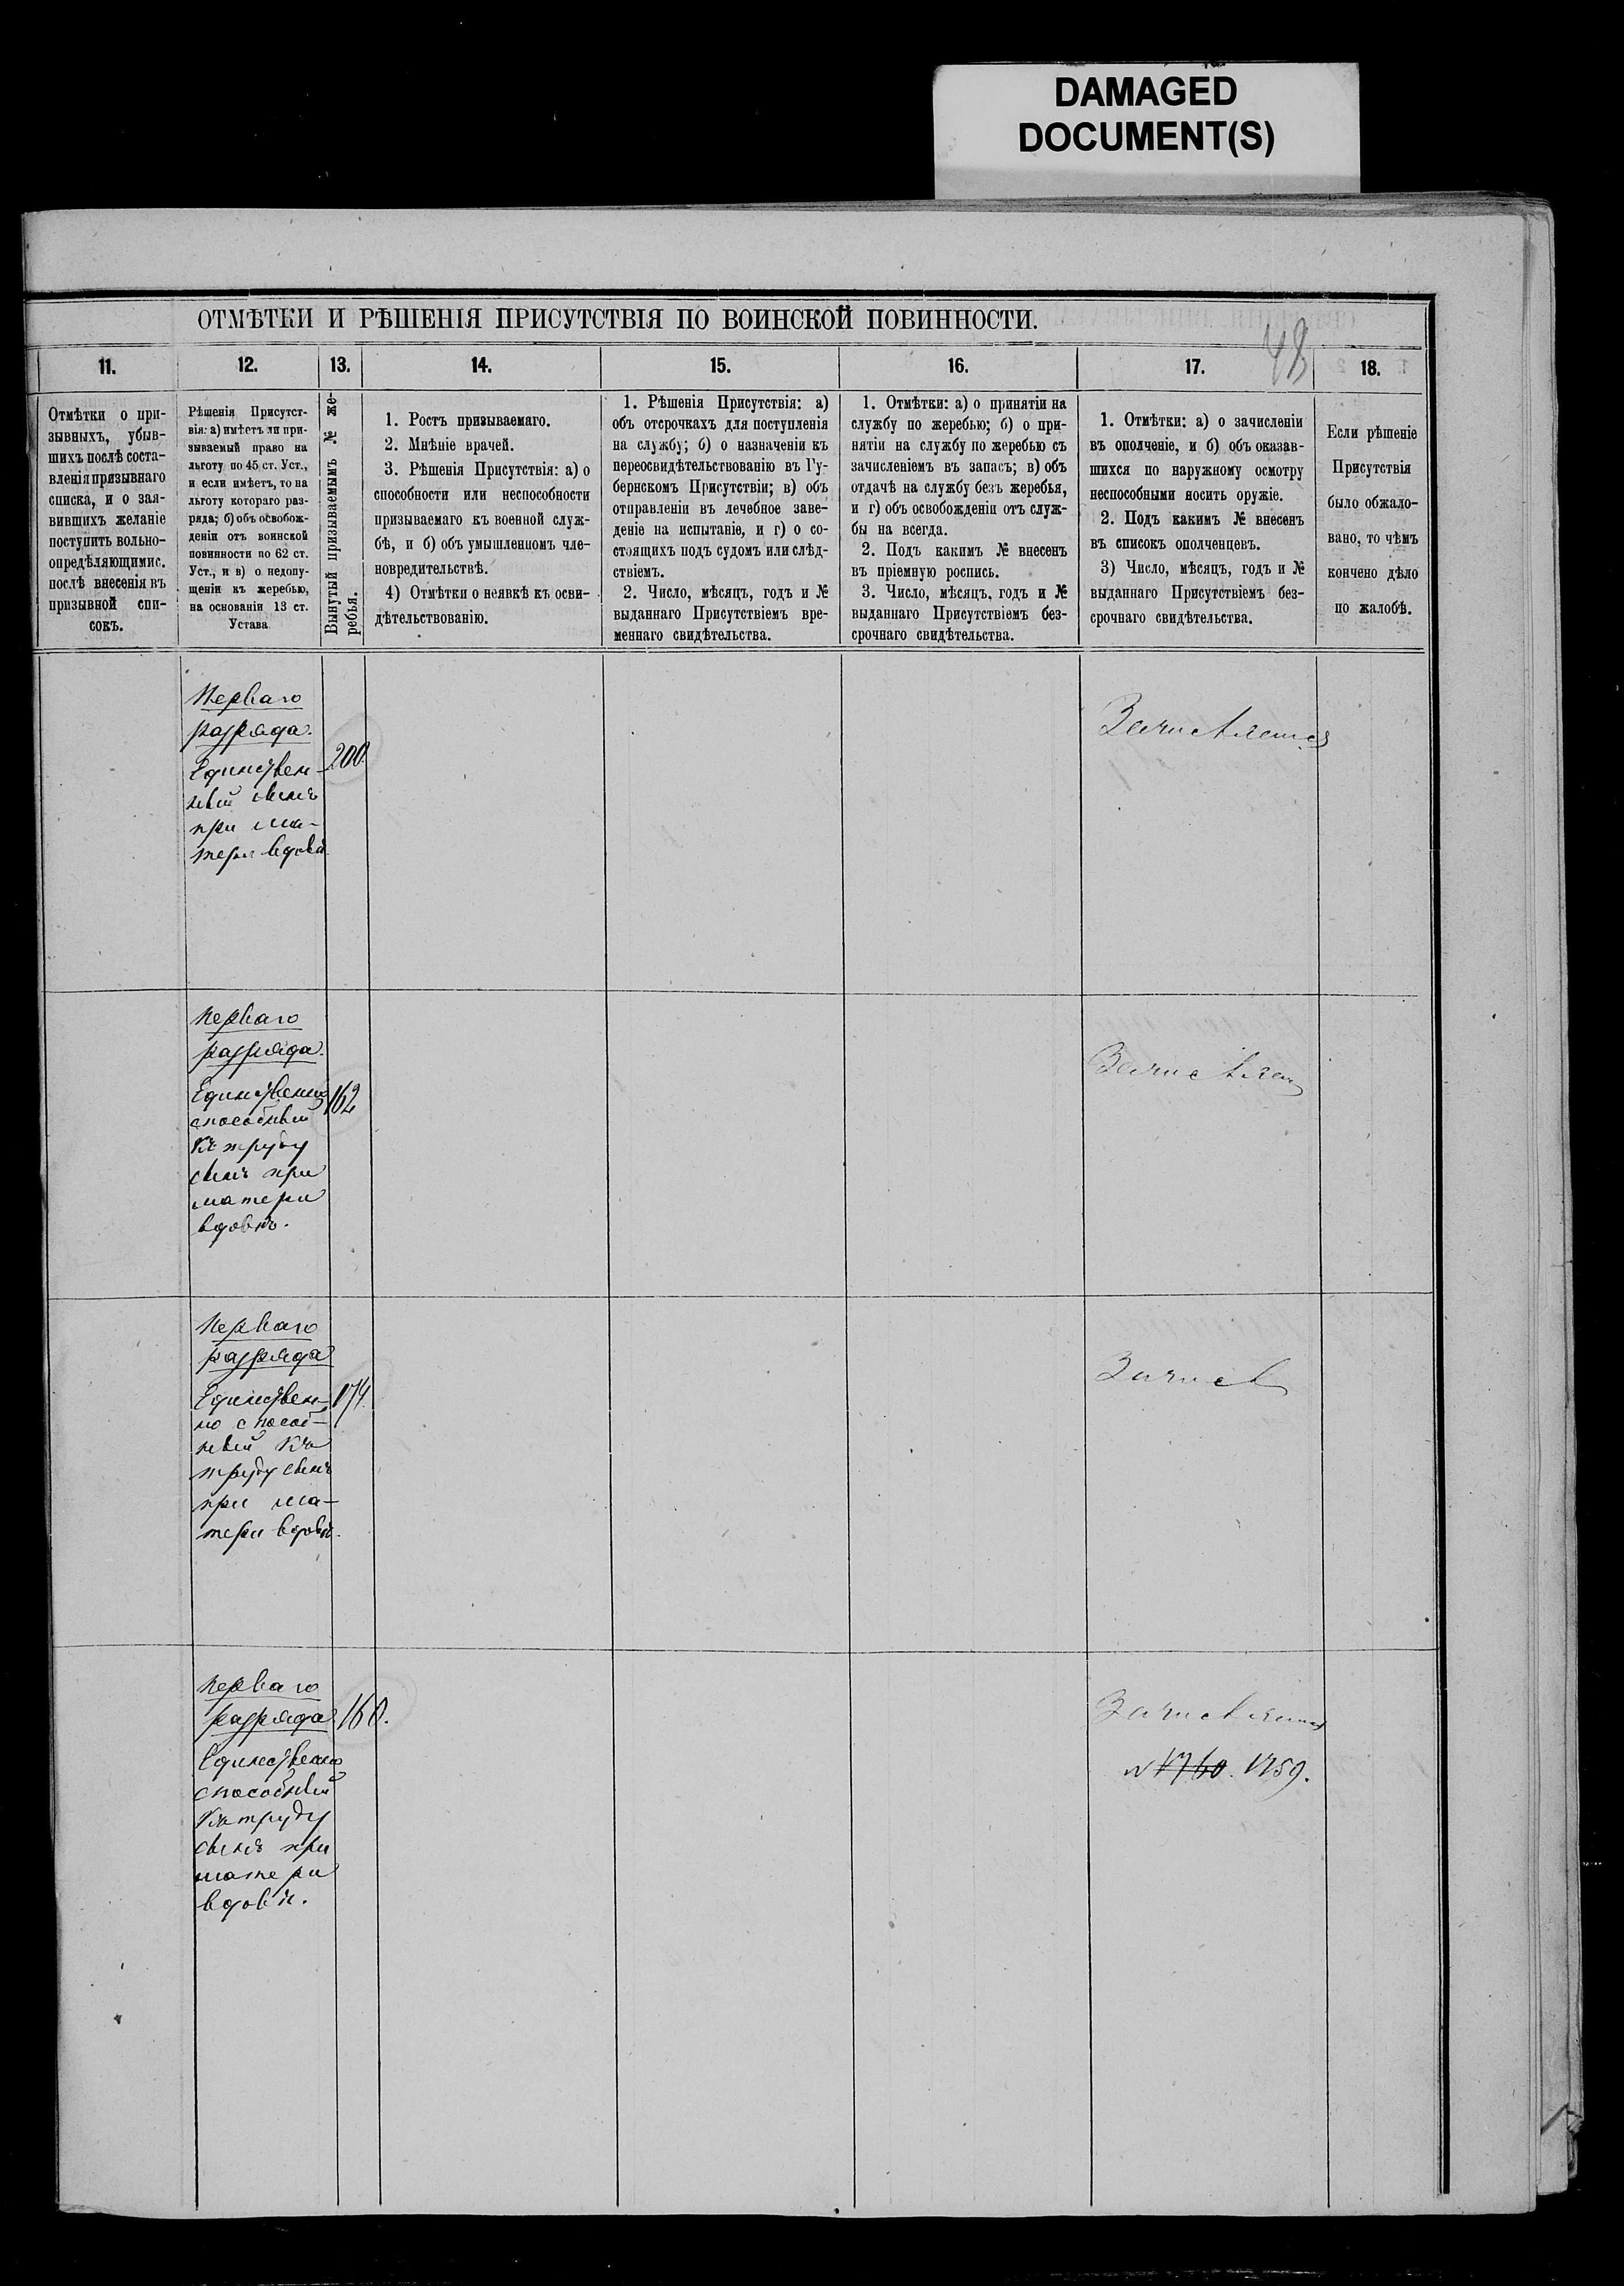 DAMAGED
DOCUMENT(S)
ОТМѢТКИ И РѢШЕНІЯ ПРИСУТСТВІЯ ПО ВОИНСКОЙ ПОВИННОСТИ.
48
11.
12.
13.
14.
15.
16.
17.
18.
Отмѣтки о при-
зывныхъ, убыв-
шихъ послѣ соста-
вленія призывнаго
списка, и о зая-
вившихъ желаніе
поступить вольно-
опредѣляющимис.
послѣ внесенія въ
призывной спи-
сокъ.
Рѣшенія Присутст-
вія: а) имѣетъ ли при-
зываемый право на
льготу по 45 ст. Уст.,
и если имѣетъ, то на
льготу котораго раз-
ряда; б) объ освобож-
деніи отъ воинской
повинности по 62 ст.
Уст., и в) о недопу-
щеніи къ жеребью,
на основаніи 13 ст.
Устава
Вынутый призываемымъ № же-
ребья.
1. Ростъ призываемаго.
2. Мнѣніе врачей.
3. Рѣшенія Присутствія: а) о
способности или неспособности
призываемаго къ военной служ-
бѣ, и б) объ умышленномъ чле-
новредительствѣ.
4) Отмѣтки о неявкѣ къ осви-
дѣтельствованію.
1. Рѣшенія Присутствія: а)
объ отсрочкахъ для поступленія
на службу; б) о назначеніи къ
переосвидѣтельствованію въ Гу-
бернскомъ Присутствіи; в) объ
отправленіи въ лечебное заве-
деніе на испытаніе, и г) о со-
стоящихъ подъ судомъ или слѣд-
ствіемъ.
2. Число, мѣсяцъ, годъ и №
выданнаго Присутствіемъ вре-
меннаго свидѣтельства.
1. Отмѣтки: а) о принятіи на
службу по жеребью; б) о при-
нятіи на службу по жеребью съ
зачисленіемъ въ запасъ; в) объ
отдачѣ на службу безъ жеребья,
и г) объ освобожденіи отъ служ-
бы на всегда.
2. Подъ какимъ № внесенъ
въ пріемную роспись.
3. Число, мѣсяцъ, годъ и №
выданнаго Присутствіемъ без-
срочнаго свидѣтельства.
1. Отмѣтки: а) о зачисленіи
въ ополченіе, и б) объ оказав-
шихся по наружному осмотру
неспособными носить оружіе.
2. Подъ какимъ № внесенъ
въ списокъ ополченцевъ.
3) Число, мѣсяцъ, годъ и №
выданнаго Присутствіемъ без-
срочнаго свидѣтельства.
Если рѣшеніе
Присутствія
было обжало-
вано, то чѣмъ
кончено дѣло
по жалобѣ.
Перваго
разряда.
Единствен-
ный сынъ
при ма-
тери вдовѣ
200.
Зачисляется
Перваго
разряда.
Единственно
способный
къ труду
сынъ при
матери
вдовѣ.
162
Зачислен
Перваго
разряда
Единствен-
но способ-
ный къ
труду сынъ
при ма-
тери вдовѣ.
174.
Зачисл
Перваго
разряда
Единственно
способный
къ труду
сынъ при
матери
вдовѣ.
160.
Зачисляется
№ 1760. 1759.